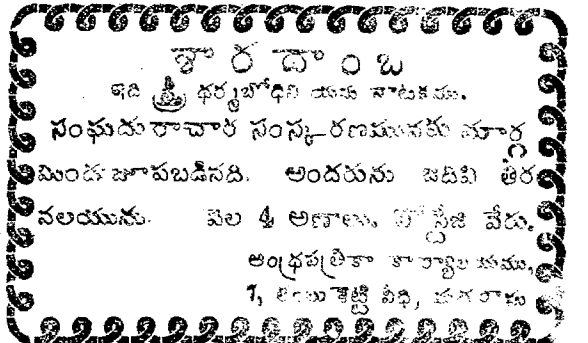 శారదాంబ
ఇది స్త్రీ ధర్మబోధిని యను నాటకము.
సంఘదురాచార సంస్కరణమునకు మార్గ
మిందు జూపబడినది. అందరును జదివి తీర
వలయును. వెల 4 అణాలు, పోస్టేజి వేరు.
ఆంధ్రపత్రికా కార్యాలయము,
7, తంబుశెట్టి వీధి, మదరాసు